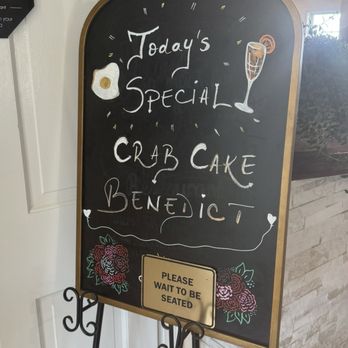 Today's
Special
Crab Cake
Benedict
PLEASE
WAIT TO BE
SEATED